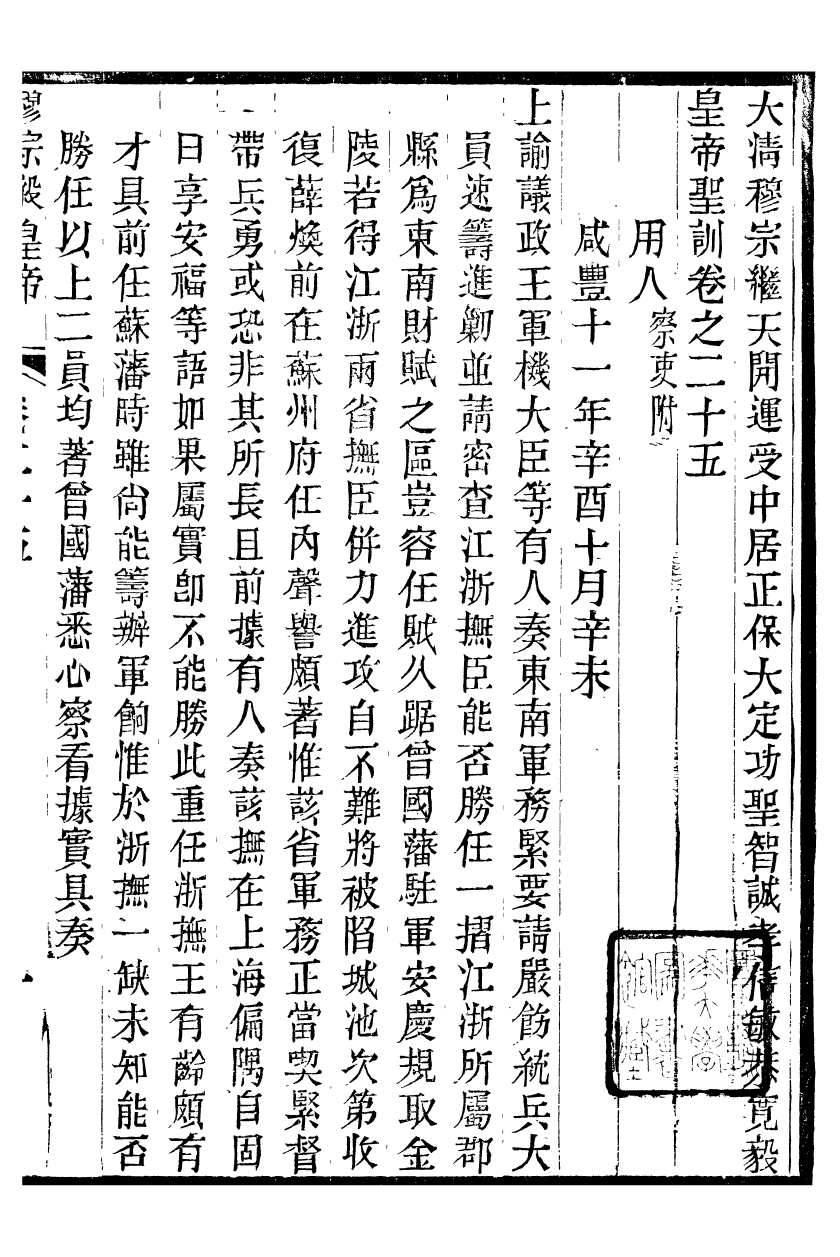 大清穆宗繼天開運受中居正保大定功聖智誠孝信敏恭寬毅
皇帝聖訓卷之二十五
用人察吏附
咸豐十一年辛酉十月辛未
上諭議政王軍機大臣等有人奏東南軍務緊要請嚴飭統兵大
員速籌進勦並請密查江浙撫臣能否勝任一摺江浙所屬郡
縣爲東南財賦之區豈容任賊久踞曾國藩駐軍安慶規取金
陵若得江浙兩省撫臣併力進攻自不難將被陷城池次第收
復薛煥前在蘇州府任內聲譽頗著惟該省軍務正當喫緊督
帶兵勇或恐非其所長且前據有人奏該撫在上海偏隅自固
日享安福等語如果屬實卽不能勝此重任浙撫王有齡頗有
才具前任蘇藩時雖尙能籌辦軍餉惟於浙撫一缺未知能否
勝任以上二員均著曾國藩悉心察看據實具奏
穆宗毅皇帝